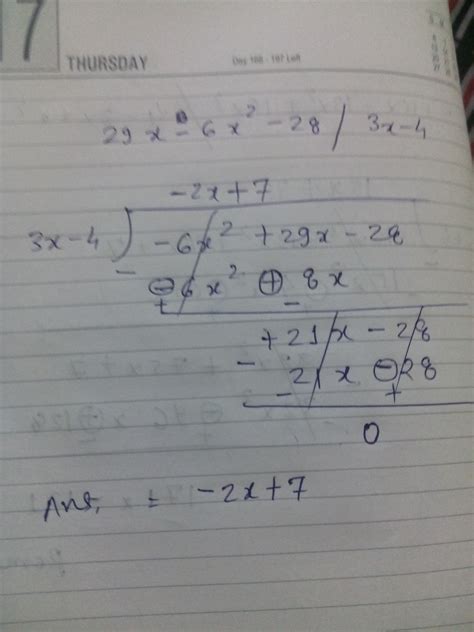 7
THURSDAY
Day 168 - 197 Left
29x - 6x² - 28 / 3x-4
-2x+7
3x-4 ) -6x² + 29x - 28
- ⊖6x² ⊕ 8x
+ -
+21x - 28
- 21x ⊖28
- +
0
Ans, = -2x+7